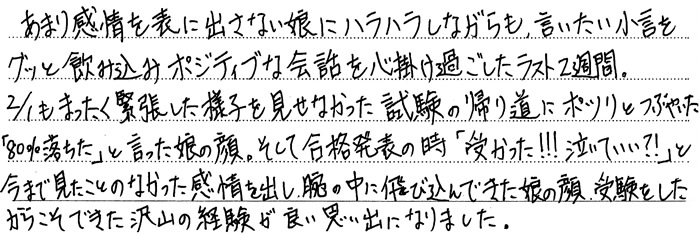 あまり感情を表に出さない娘にハラハラしながらも、言いたい小言を
グッと飲み込みポジティブな会話を心掛け過ごしたラスト2週間。
2/1もまったく緊張した様子を見せなかった試験の帰り道にポツリとつぶやいた
「80%落ちた」と言った娘の顔。そして合格発表の時「受かった!!!泣いていい?!」と
今まで見たことのなかった感情を出し、腕の中に飛び込んできた娘の顔、受験をした
からこそできた沢山の経験が良い思い出になりました。